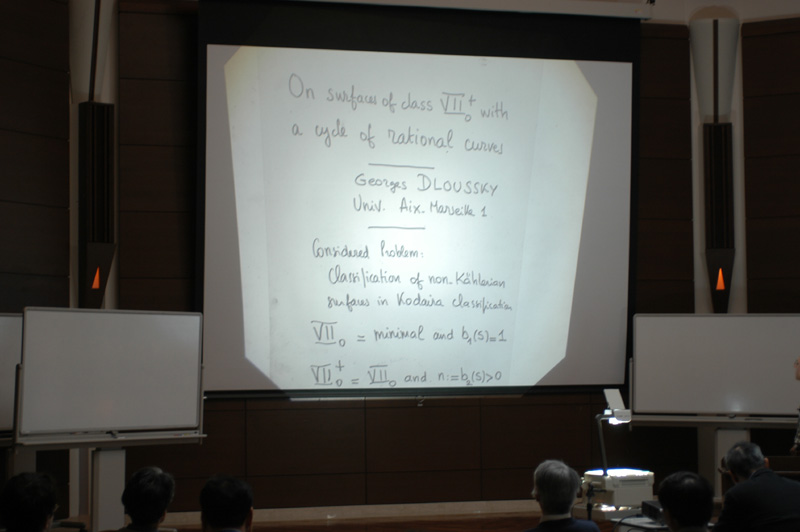 On surfaces of class VII₀⁺ with
a cycle of rational curves
Georges DLOUSSKY
Univ. Aix-Marseille 1
Considered Problem:
Classification of non-Kählerian
surfaces in Kodaira classification
VII₀ = minimal and b₁(S)=1
VII₀⁺ = VII₀ and n:=b₂(S)>0